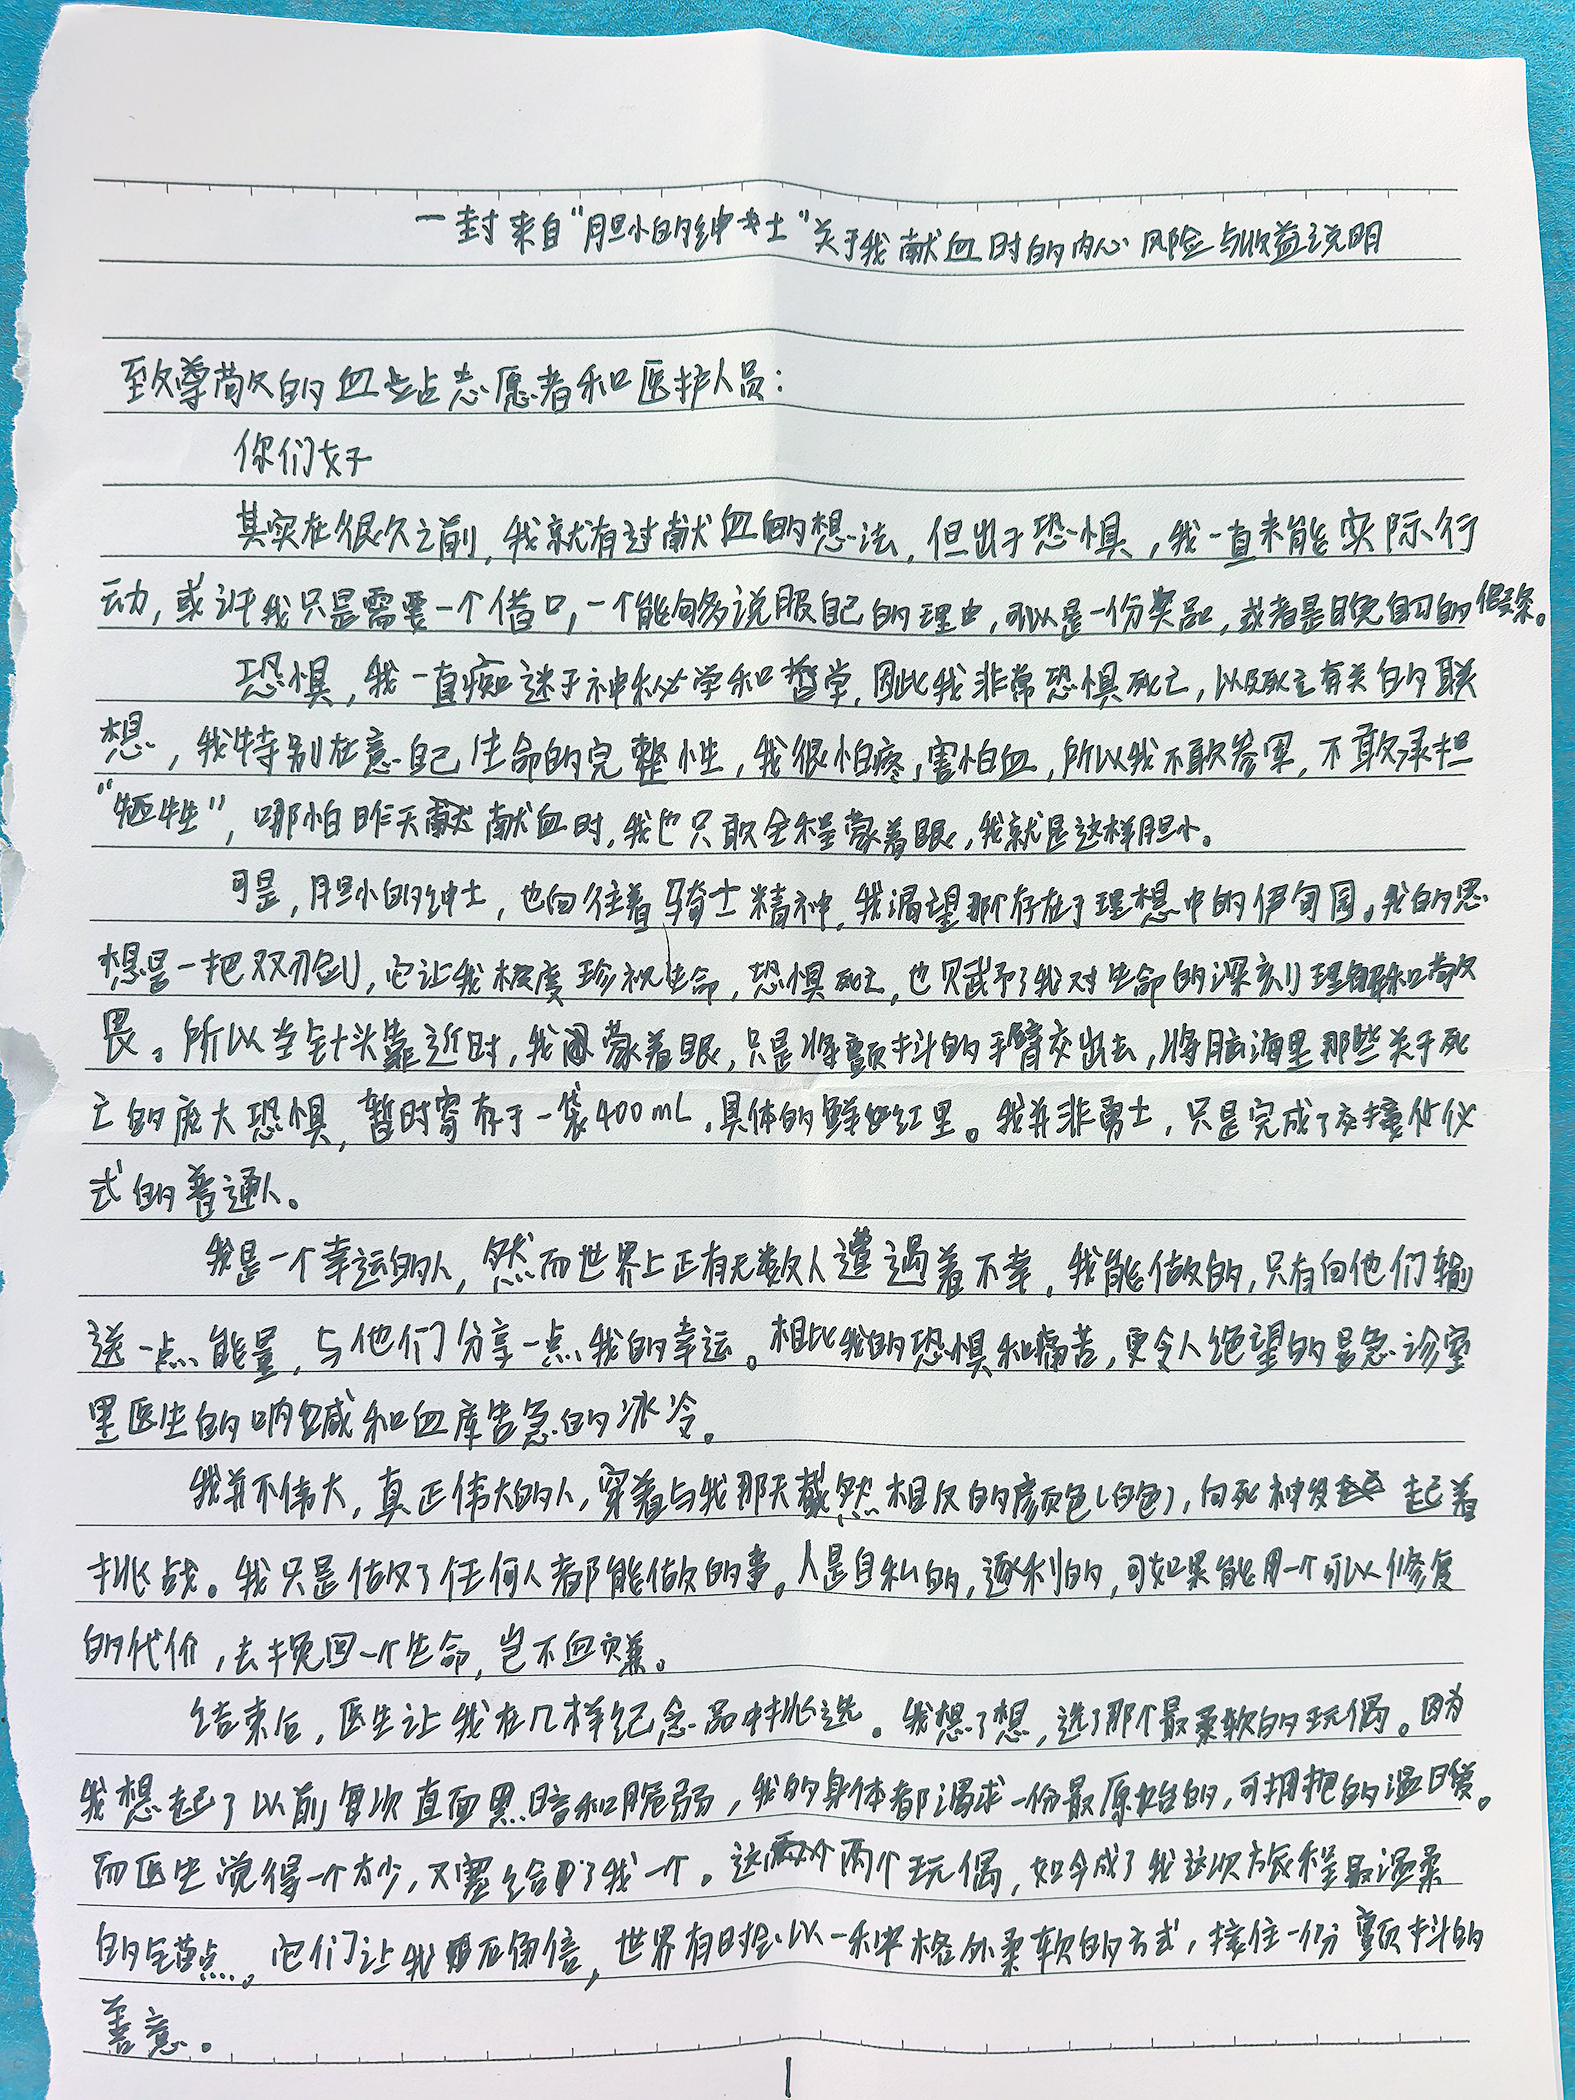 一封来自“胆小的绅士”关于我献血时的内心风险与收益说明
致尊敬的血站志愿者和医护人员:
你们好
其实在很久之前,我就有过献血的想法,但出于恐惧,我一直未能实际行
动,或许我只是需要一个借口,一个能够多说服自己的理由,可以是一份奖品,或者是晚自习的假条。
恐惧,我一直痴迷于神秘学和哲学,因此我非常恐惧死亡,以及死亡有关的联
想,我特别在意自己生命的完整性,我很怕疼,害怕血,所以我不敢参军,不敢承担
“牺牲”,哪怕昨天献血时,我也只敢全程蒙着眼,我就是这样胆小。
可是,胆小的绅士,也向往着骑士精神,我渴望那个存在于理想中的伊甸园。我的思
想是一把双刃剑,它让我极度珍视生命,恐惧死亡,也赋予了我对生命的深刻理解和敬
畏。所以当针头靠近时,我蒙着眼,只是将颤抖的手臂交出去,将脑海里那些关于死
亡的庞大恐惧,暂时寄存于一袋400mL,具体的鲜红里。我并非勇士,只是完成了交接仪
式的普通人。
我是一个幸运的人,然而世界上正有无数人遭遇着不幸,我能做的,只有向他们输
送一点能量,与他们分享一点我的幸运。相比我的恐惧和痛苦,更令人绝望的是急诊室
里医生的呐喊和血库告急的冰冷。
我并不伟大,真正伟大的人,穿着与我那天截然相反的颜色(白色),向死神发起着
挑战。我只是做了任何人都能做的事。人是自私的,逐利的,可如果能用一个可以修复
的代价,去挽回一个生命,岂不血赚。
结束后,医生让我在几样纪念品中挑选。我想了想,选了那个最柔软的玩偶。因为
我想起了以前每次直面黑暗和脆弱,我的身体都渴求一份最原始的,可拥抱的温暖。
而医生觉得一个太少,又塞给了我一个。这两个玩偶,如今成了我这次旅程最温柔
的锚点。它们让我更加确信,世界有时会以一种格外柔软的方式,接住一份颤抖的
善意。
1